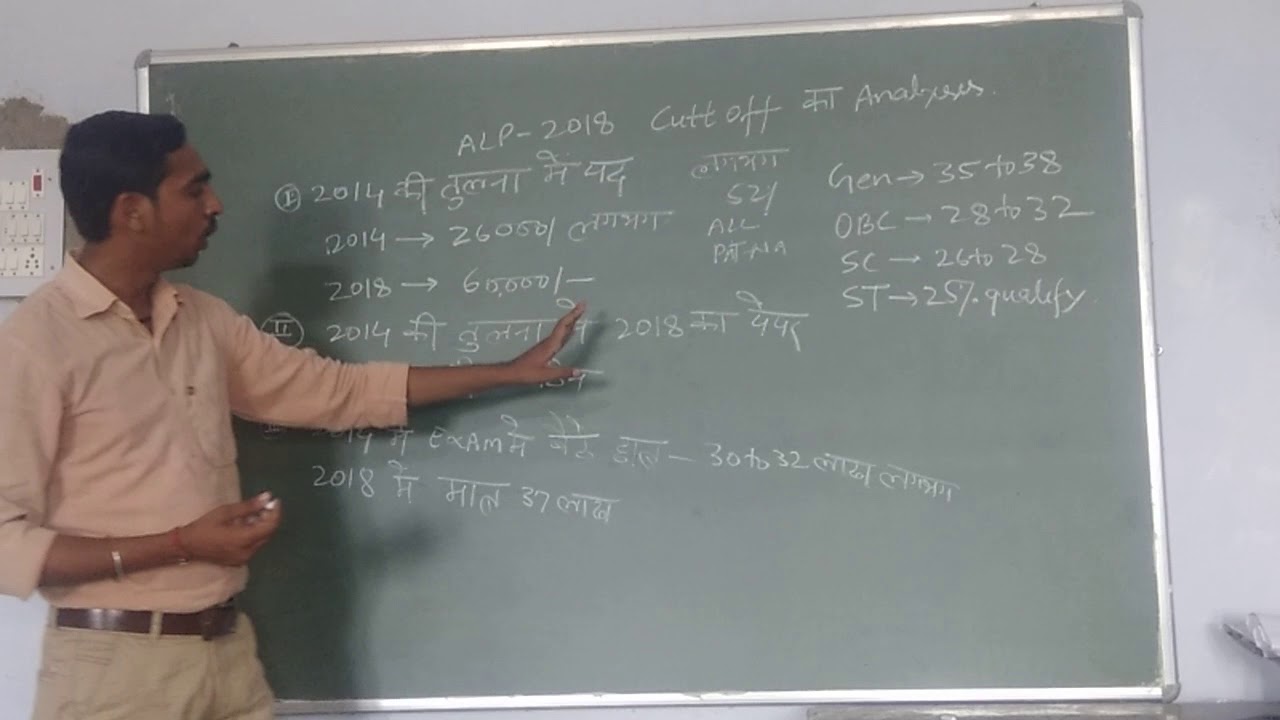 ALP-2018 Cutt Off का Analyses.
Ⓘ 2014 की तुलना में पद
2014 → 26000/ लगभग
2018 → 60,000/-
लगभग
52%
ALL
PATNA
Gen → 35 to 38
OBC → 28 to 32
SC → 26 to 28
ST → 25% qualify
Ⓘⓘ 2014 की तुलना में 2018 का पेपर
2014 में Exam में बैठे हाल - 30 to 32 लाख लगभग
2018 में मात्र 37 लाख